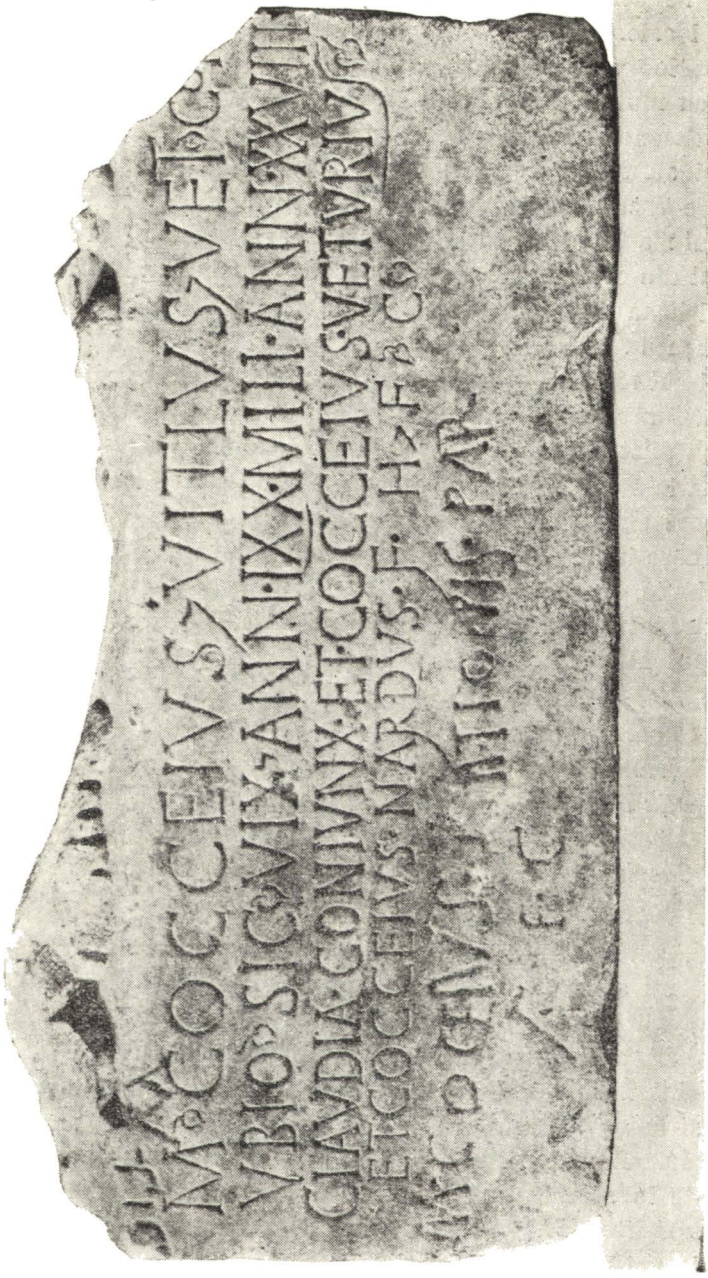 M COCCEIVS VITLVS VET CO
VBIO SIG VIX ANN IXX MILI ANN XXVIII
CLAVDIA CONIVNX ET COCCEIVS VETVRIVS
ET COCCEIVS NARDVS F H F C
PAR
F C